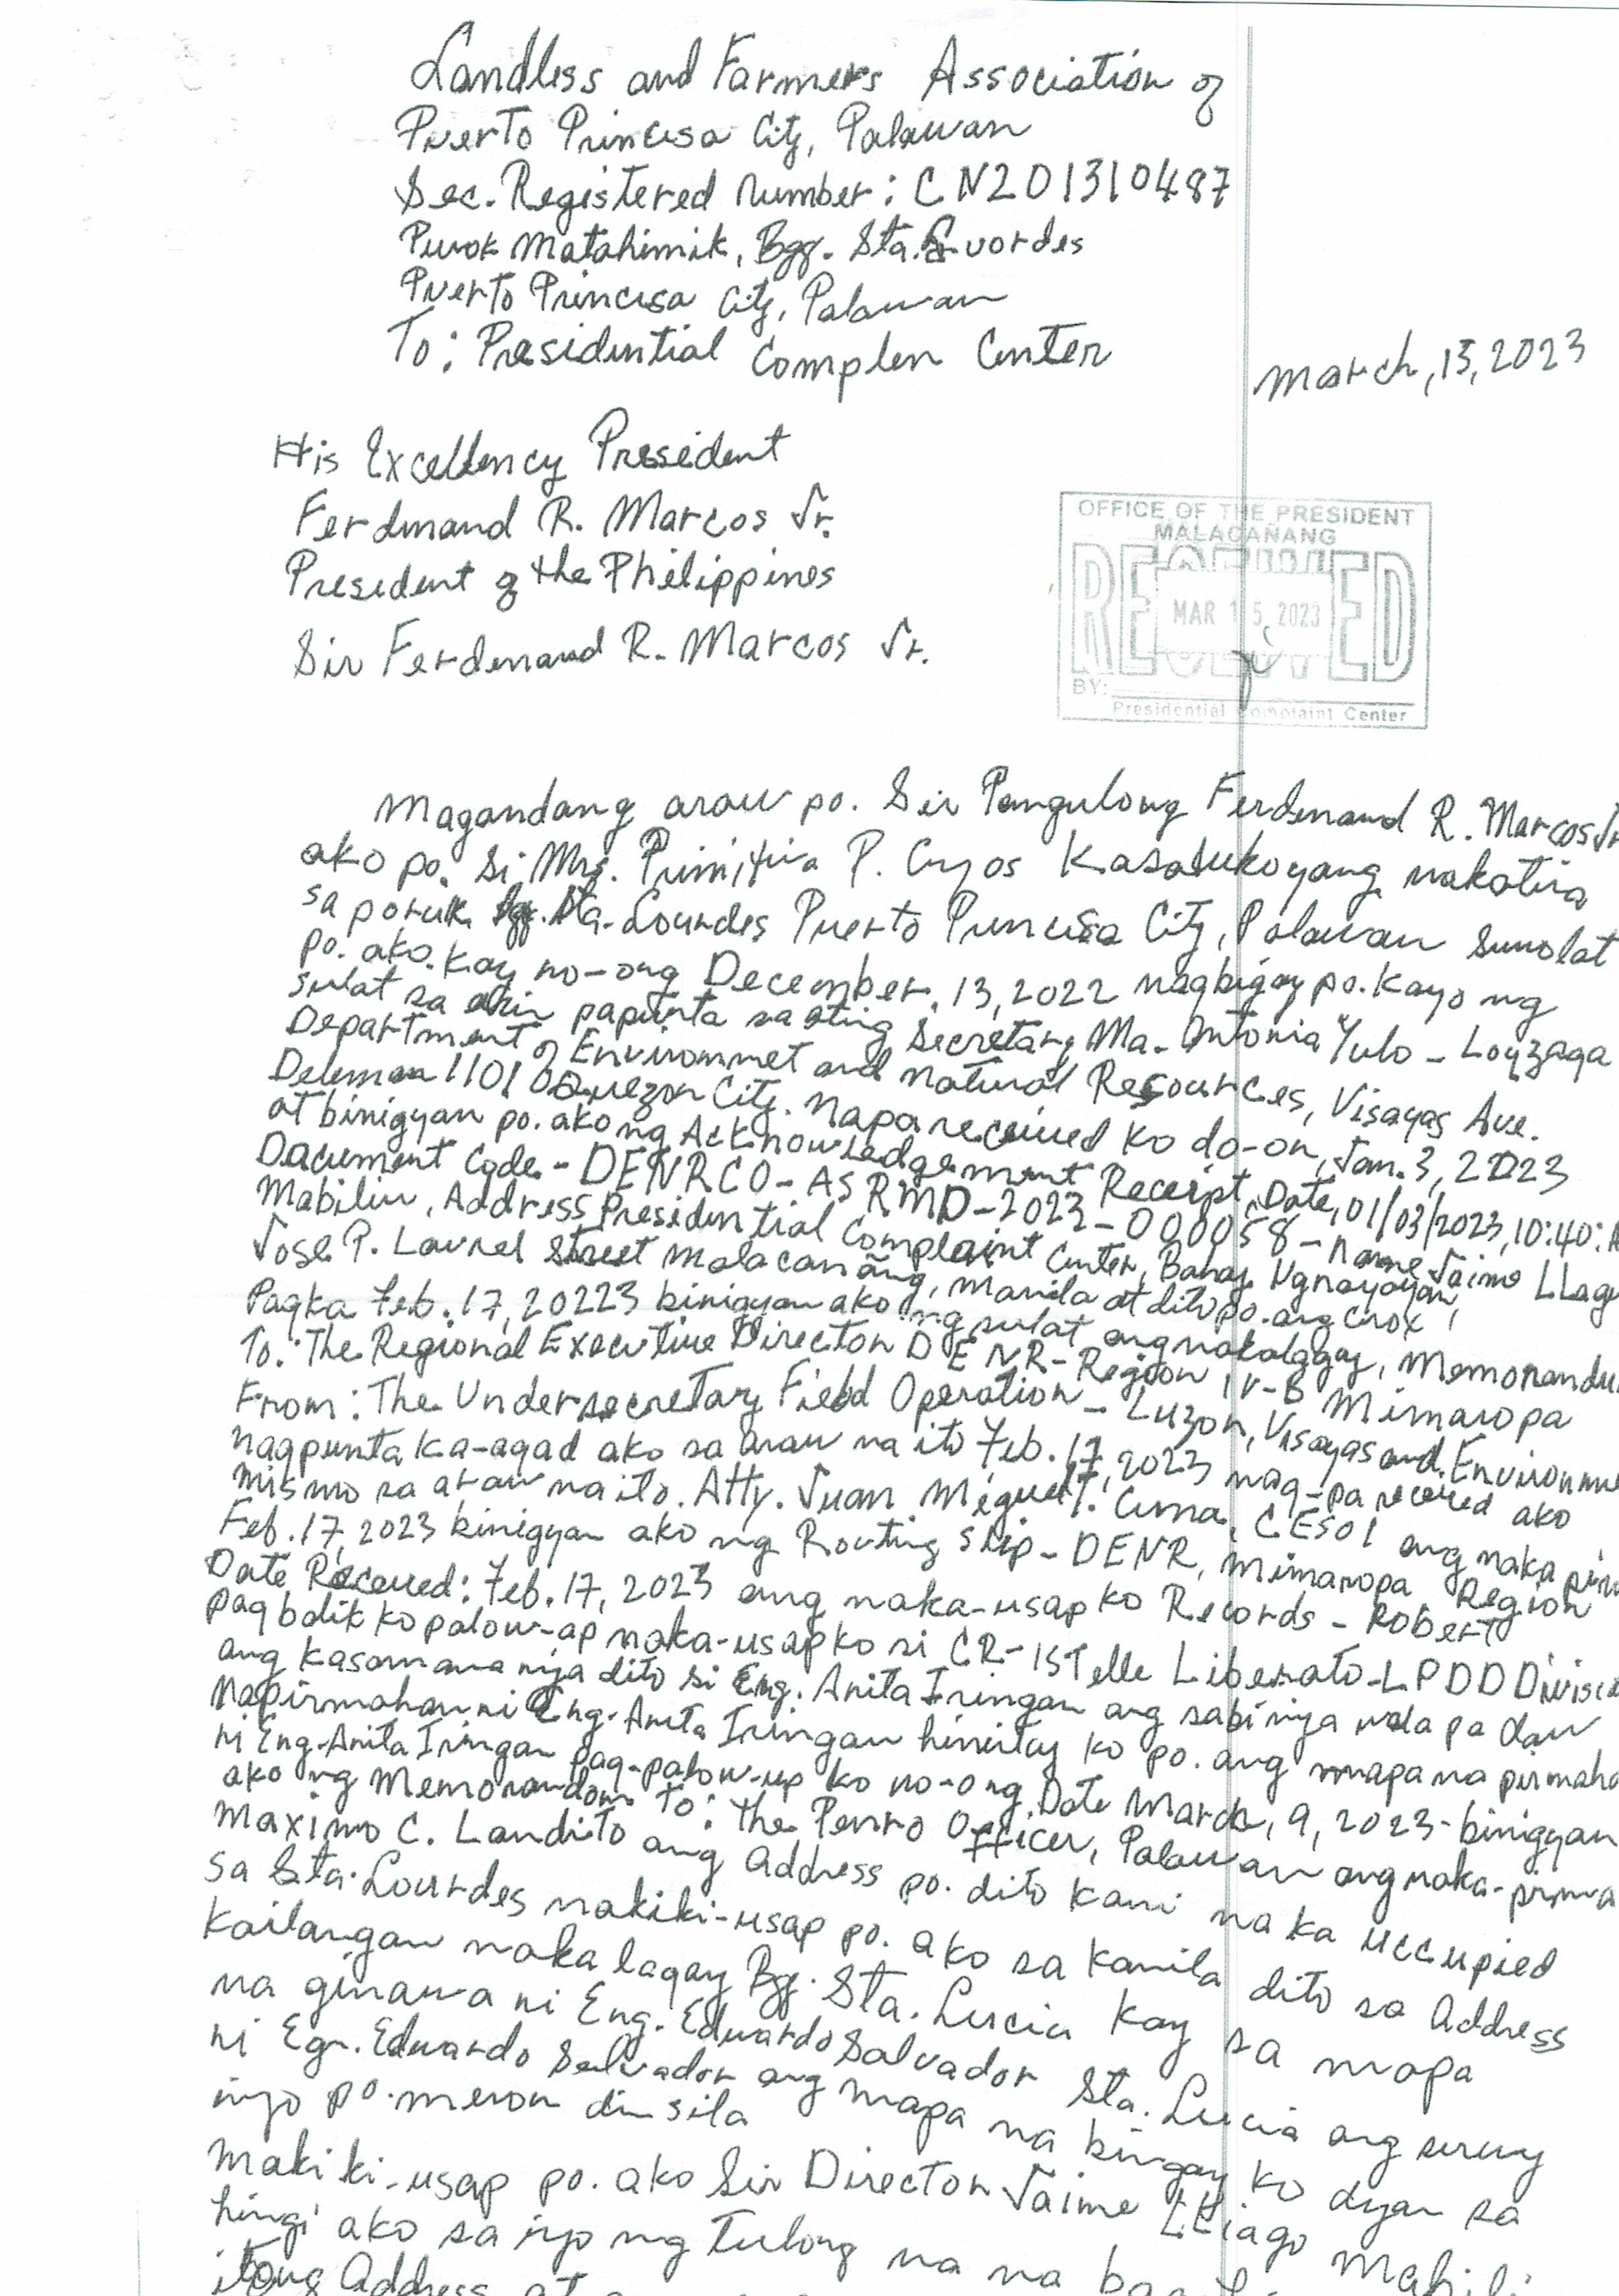 Landless and Farmers Association of
Puerto Princesa City, Palawan
Sec. Registered Number: CN201310487
Purok Matahimik, Bgy. Sta. Luordes
Puerto Princesa City, Palawan
To: Presidential Complen Center
March, 15, 2023
His Excellency President
Ferdinand R. Marcos Jr.
President of the Philippines
Sir Ferdenand R. Marcos Jr.
OFFICE OF THE PRESIDENT
MALACAÑANG
RECEIVED
MAR 15, 2023
BY:
Presidential Complaint Center
Magandang araw po. Sir Pangulong Ferdenand R. Marcos Jr.
ako po. si Mrs. Primitiva P. Cuyos Kasalukoyang nakatira
sa poruk Bgy. Sta. Lourdes Puerto Princesa City, Palawan Sumolat
po. ako. kay no-ong December, 13, 2022 nagbigay po. Kayo ng
sulat sa akin papunta sa ating Secretary Ma. Antonia Yulo - Loyzaga
Department of Envirommet and Natural Resources, Visayas Ave.
Deleman 1101 Quezon City. Napareceived ko do-on, Jan. 3, 2023
at binigyan po. ako ng Acknowledgement Receipt, Date, 01/03/2023, 10:40:
Dacument Code - DENRCO-ASRMD-2023-000058 - Name Jaime LLag
Mabilin, Address Presidential Complaint Center, Bahay Ugnayayan,
Jose P. Laurel Street Malacanãng, Manila at dito po. ang cirox
Pagka Feb. 17, 20223 binigyan ako ng sulat ang nakalagay, Memorandu
To: The Regional Executive Director DENR-Region IV-B Mimaropa
From: The Undersecretary Field Operation - Luzon, Visayas and Environme
nagpunta ka-agad ako sa araw na ito Feb. 17, 2023 nag-pa received ako
mismo sa araw na ito. Atty. Juan Miguel T. Cuna, CESO I ang naka pirm
Feb. 17, 2023 binigyan ako ng Routing Slip - DENR, Mimaropa Region
Date Received: Feb. 17, 2023 ang naka-usap ko Records - Robert
pagbalik ko palow-ap naka-usap ko si CR-Istelle Liberato-LPDD Divisi
ang kasamana nya dito si Eng. Anita Iringan ang sabi nya wala pa daw
Napirmahan ni Eng. Anita Iringan hinintay ko po. ang mmapa na pirmaha
ni Eng. Anita Iringan pag-palow-up ko no-ong Date March, 9, 2023 - binigyan
ako ng Memorandom To: The Penro Officer, Palawan ang naka-pirma
Maximo C. Landrito ang address po. dito kami na ka uccupied
sa Sta. Lourdes nakiki-usap po. ako sa kanila dito sa Address
kailangan naka lagay Bgy. Sta. Lucia kay sa mapa
na ginawa ni Eng. Eduardo Salvador Sta. Lucia ang survey
ni Egr. Eduardo Salvador ang mapa na bingay ko dyan sa
inyo po. meron din sila
Makiki-usap po. ako Sir Director Jaime LLiago Mabili
hingi ako sa inyo ng tulong na na
itong Address at